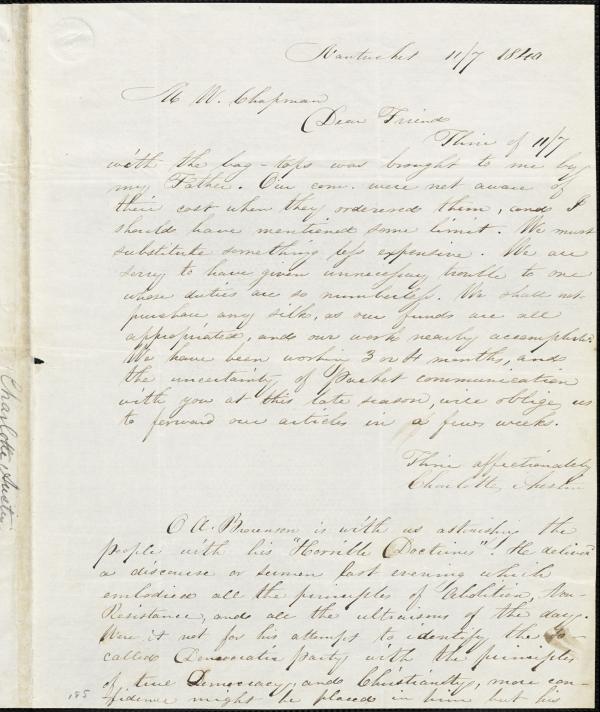 Nantucket 11/7 1840
M W. Chapman
Dear Friend
Thine of 11/7
with the bag-tops was brought to me by
my Father. Our com. were not aware of
their cost when they ordered them, and I
should have mentioned some limit. We must
substitute something less expensive. We are
sorry to have given unnecessary trouble to one
whose duties are so numberless. We shall not
purchase any silk, as our funds are all
appropriated, and our work nearly accomplish.
We have been working 3 or 4 months, and
the uncertainty of packet communication
with you at this late season, will oblige us
to forward our articles in a few weeks.
Thine affectionately
Charlotte Austin
O A. Brownson is with us astonishing the
people with his "Horrible Doctrines"! He deliver
a discourse or sermon last evening which
embodied all the principles of Abolition, Non-
Resistance, and all the ultraisms of the day.
Were it not for his attempt to identify the so-
called Democratic party with the principles
of true Democracy, and Christianity, more con-
fidence might be placed in him but his
185
Charlotte Austin